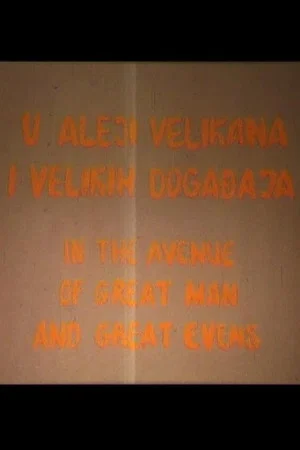 U ALEJI VELIKANA
I VELIKIH DOGAĐAJA
IN THE AVENUE
OF GREAT MAN
AND GREAT EVENS